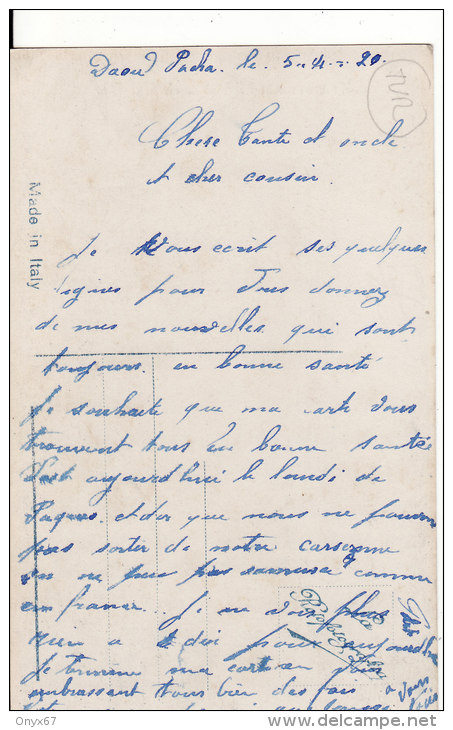 Daoud Pacha. le 5.-4-: 20.
TUR
Chere tante et oncle
et cher cousin
Made in Italy
Je Vous ecrit ses quelques
lignes pour Vous donnez
de mes nouvelles qui sont
toujours en bonne santé
Je souhaite que ma carte vous
trouvent tous en bonne santée
aujourd'hui le lundi de
Paques et dir que nous ne pouvon
pas sortir de notre caserne
on ne peu pas comme
en france. Je ne vois plus
rien a dir pour aujourdhui
Je termine ma carte en vous
embrassent tous bien des fois
Onyx67